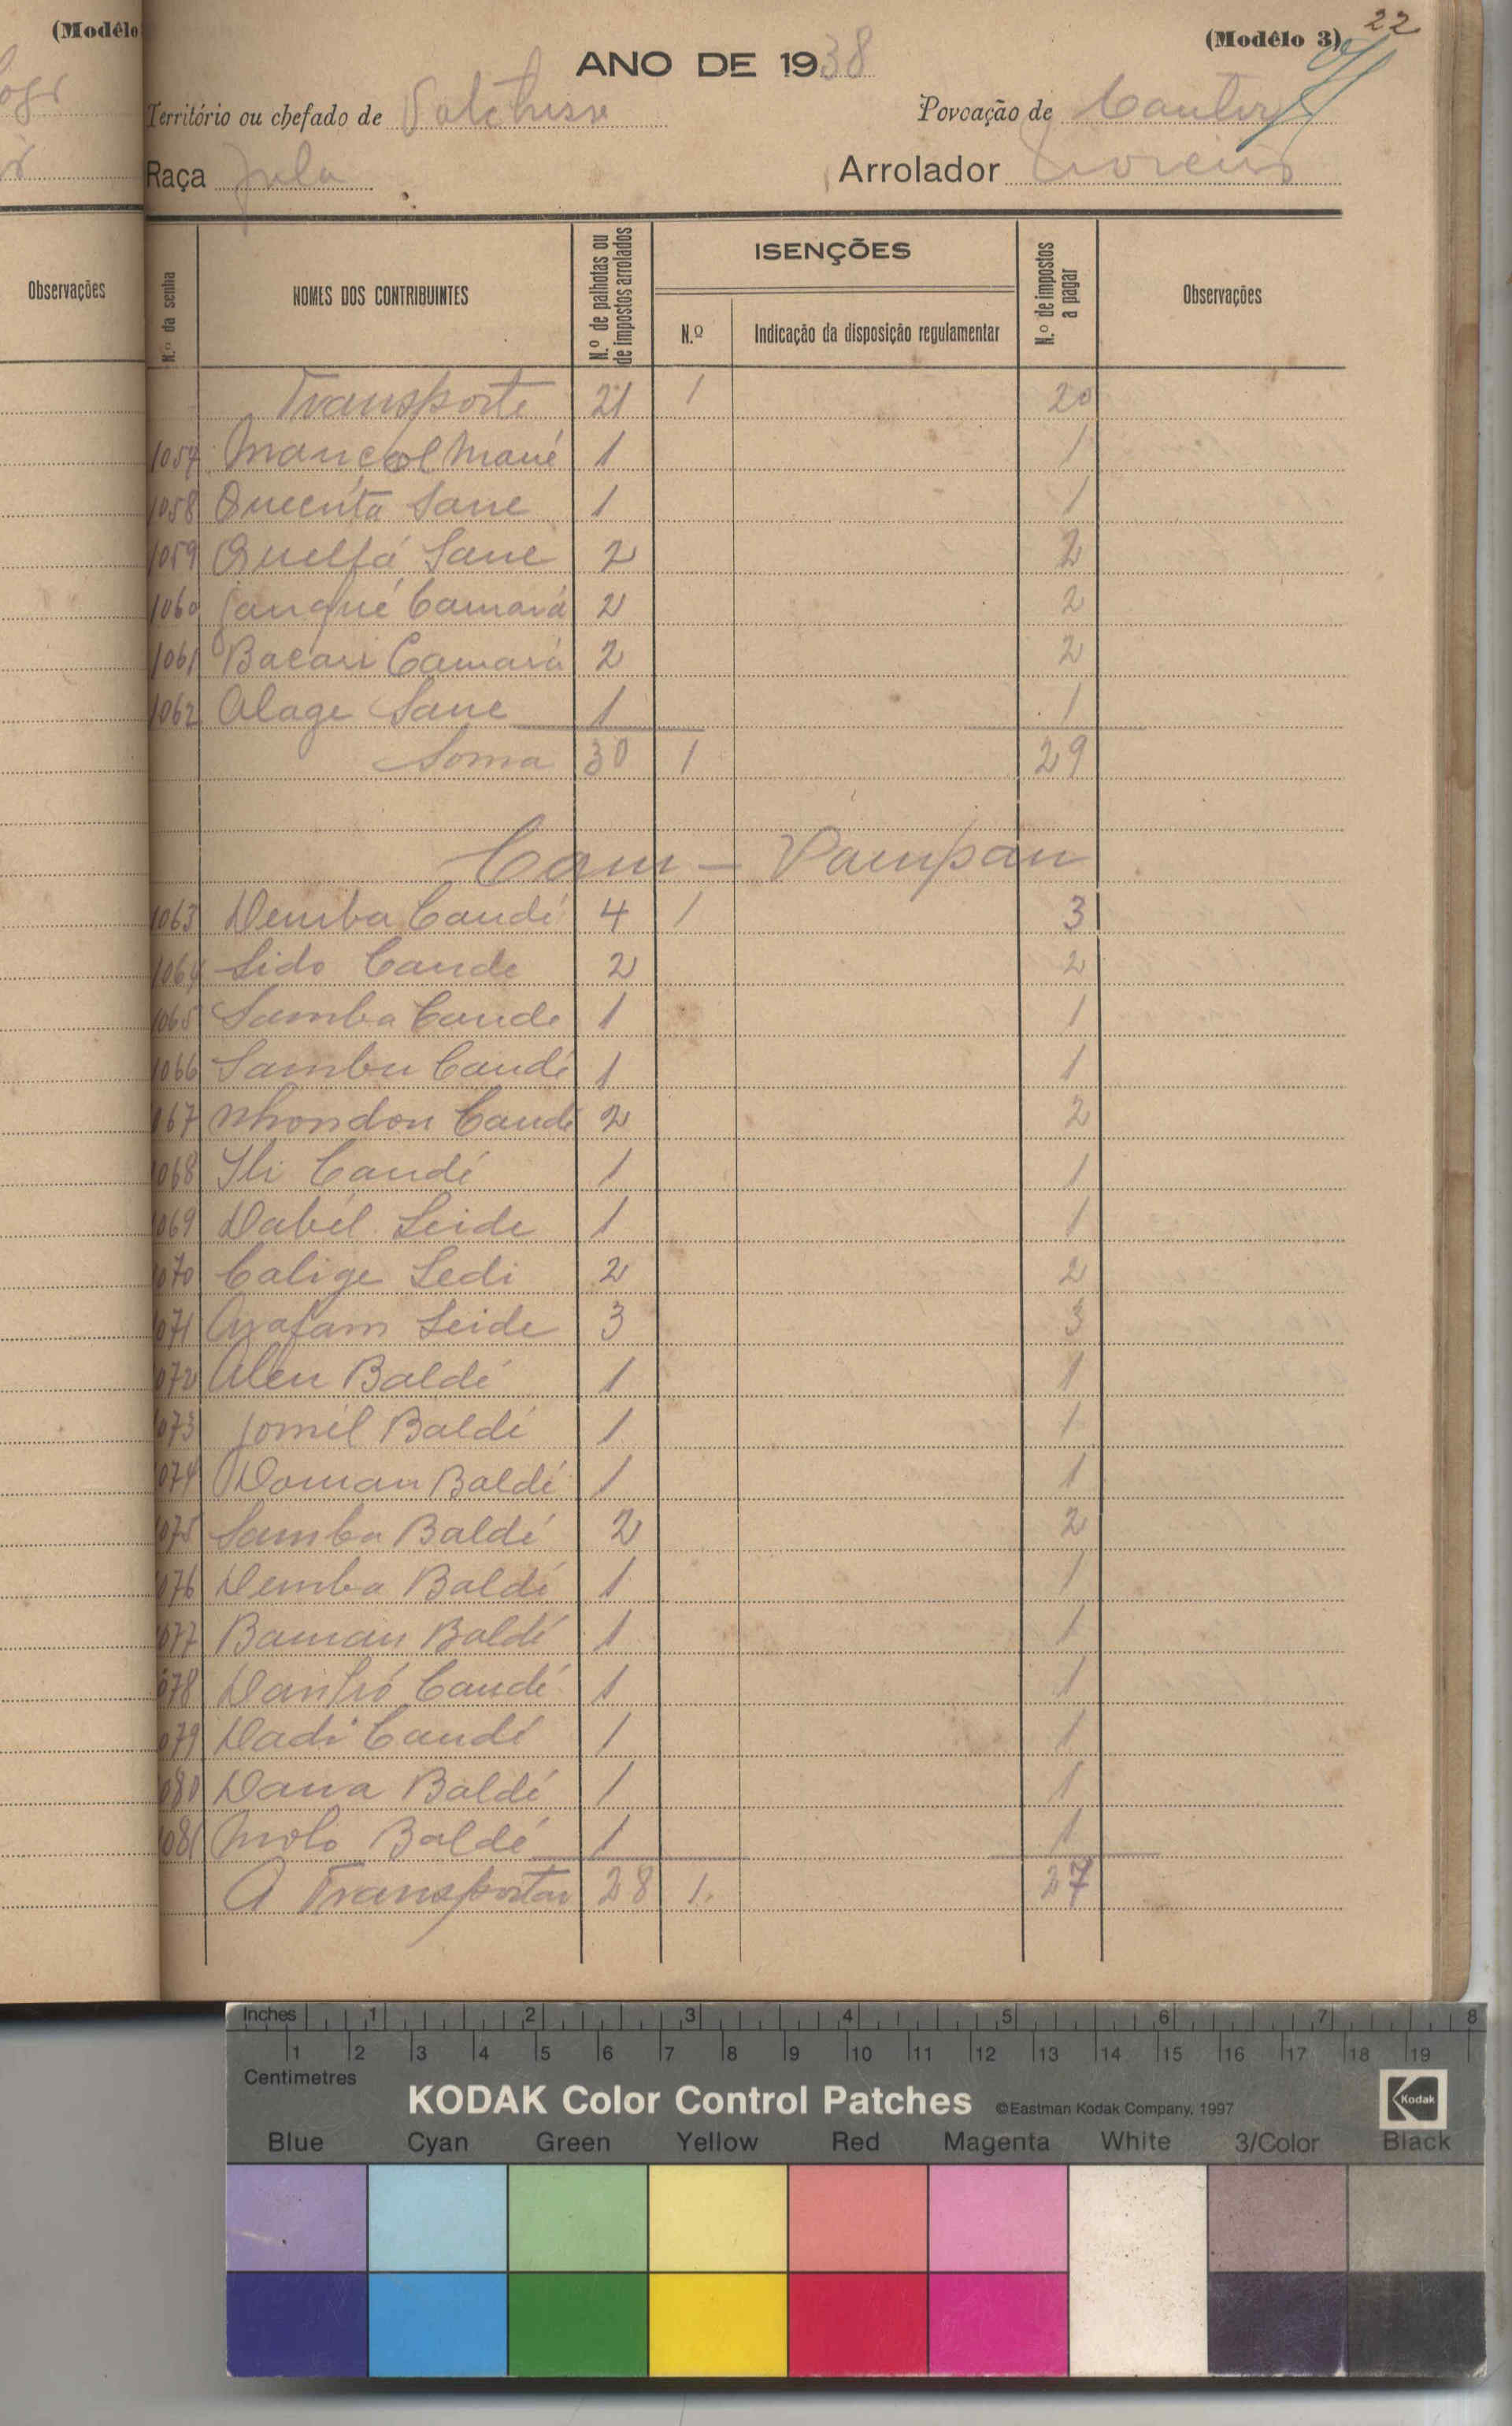 (Modêlo
Observações
22
(Modêlo 3)
ANO DE 1938
Território ou chefado de
Povoação de
Raça Fula
Arrolador Moreira
N.º da senha
NOMES DOS CONTRIBUINTES
N.º de palhotas ou de impostos arrolados
ISENÇÕES
N.º
Indicação da disposição regulamentar
N.º de impostos a pagar
Observações
Transporte 21 1 20
1057 Mané 1 1
1058 Quecuta Sane 1 1
1059 Quelfá Sane 2 2
1060 Janqué Camará 2 2
1061 Bacari Camará 2 2
1062 Alage Sane 1 1
Soma 30 1 29
Cam - Pampan
1063 Demba Candé 4 1 3
1064 Sido Cande 2 2
1065 Samba Cande 1 1
1066 Sambu Candé 1 1
1067 Nhondon Candé 2 2
1068 Ili Candé 1 1
1069 Dabél Seide 1 1
1070 Calige Sedi 2 2
1071 Seide 3 3
1072 Aleu Baldé 1 1
1073 Jomel Baldé 1 1
1074 Doman Baldé 1 1
1075 Samba Baldé 2 2
1076 Demba Baldé 1 1
1077 Baman Baldé 1 1
1078 Candé 1 1
1079 Dadi Candé 1 1
1080 Daua Baldé 1 1
1081 Molo Baldé 1 1
A Transportar 28 1 27
Inches 1 2 3 4 5 6 7 8
1 2 3 4 5 6 7 8 9 10 11 12 13 14 15 16 17 18 19
Centimetres
KODAK Color Control Patches ©Eastman Kodak Company, 1997 Kodak
Blue Cyan Green Yellow Red Magenta White 3/Color Black